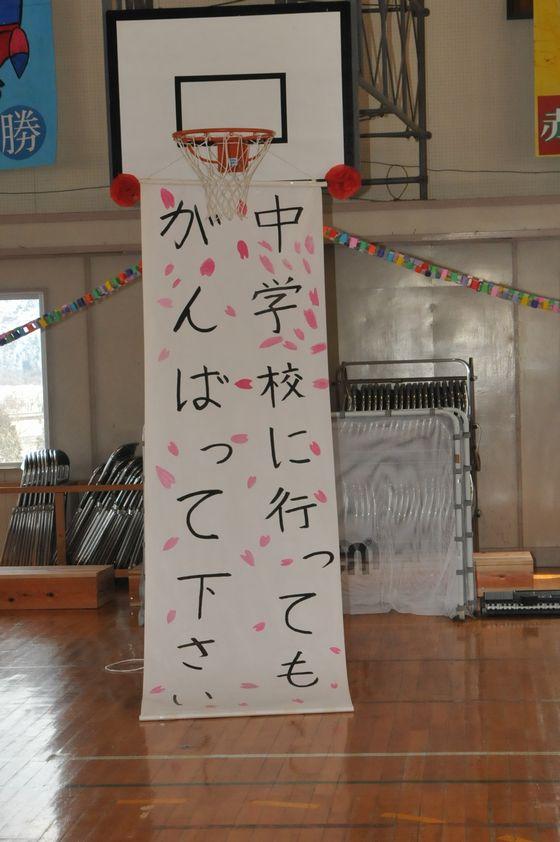 中学校に行っても
がんばって下さい
勝
赤